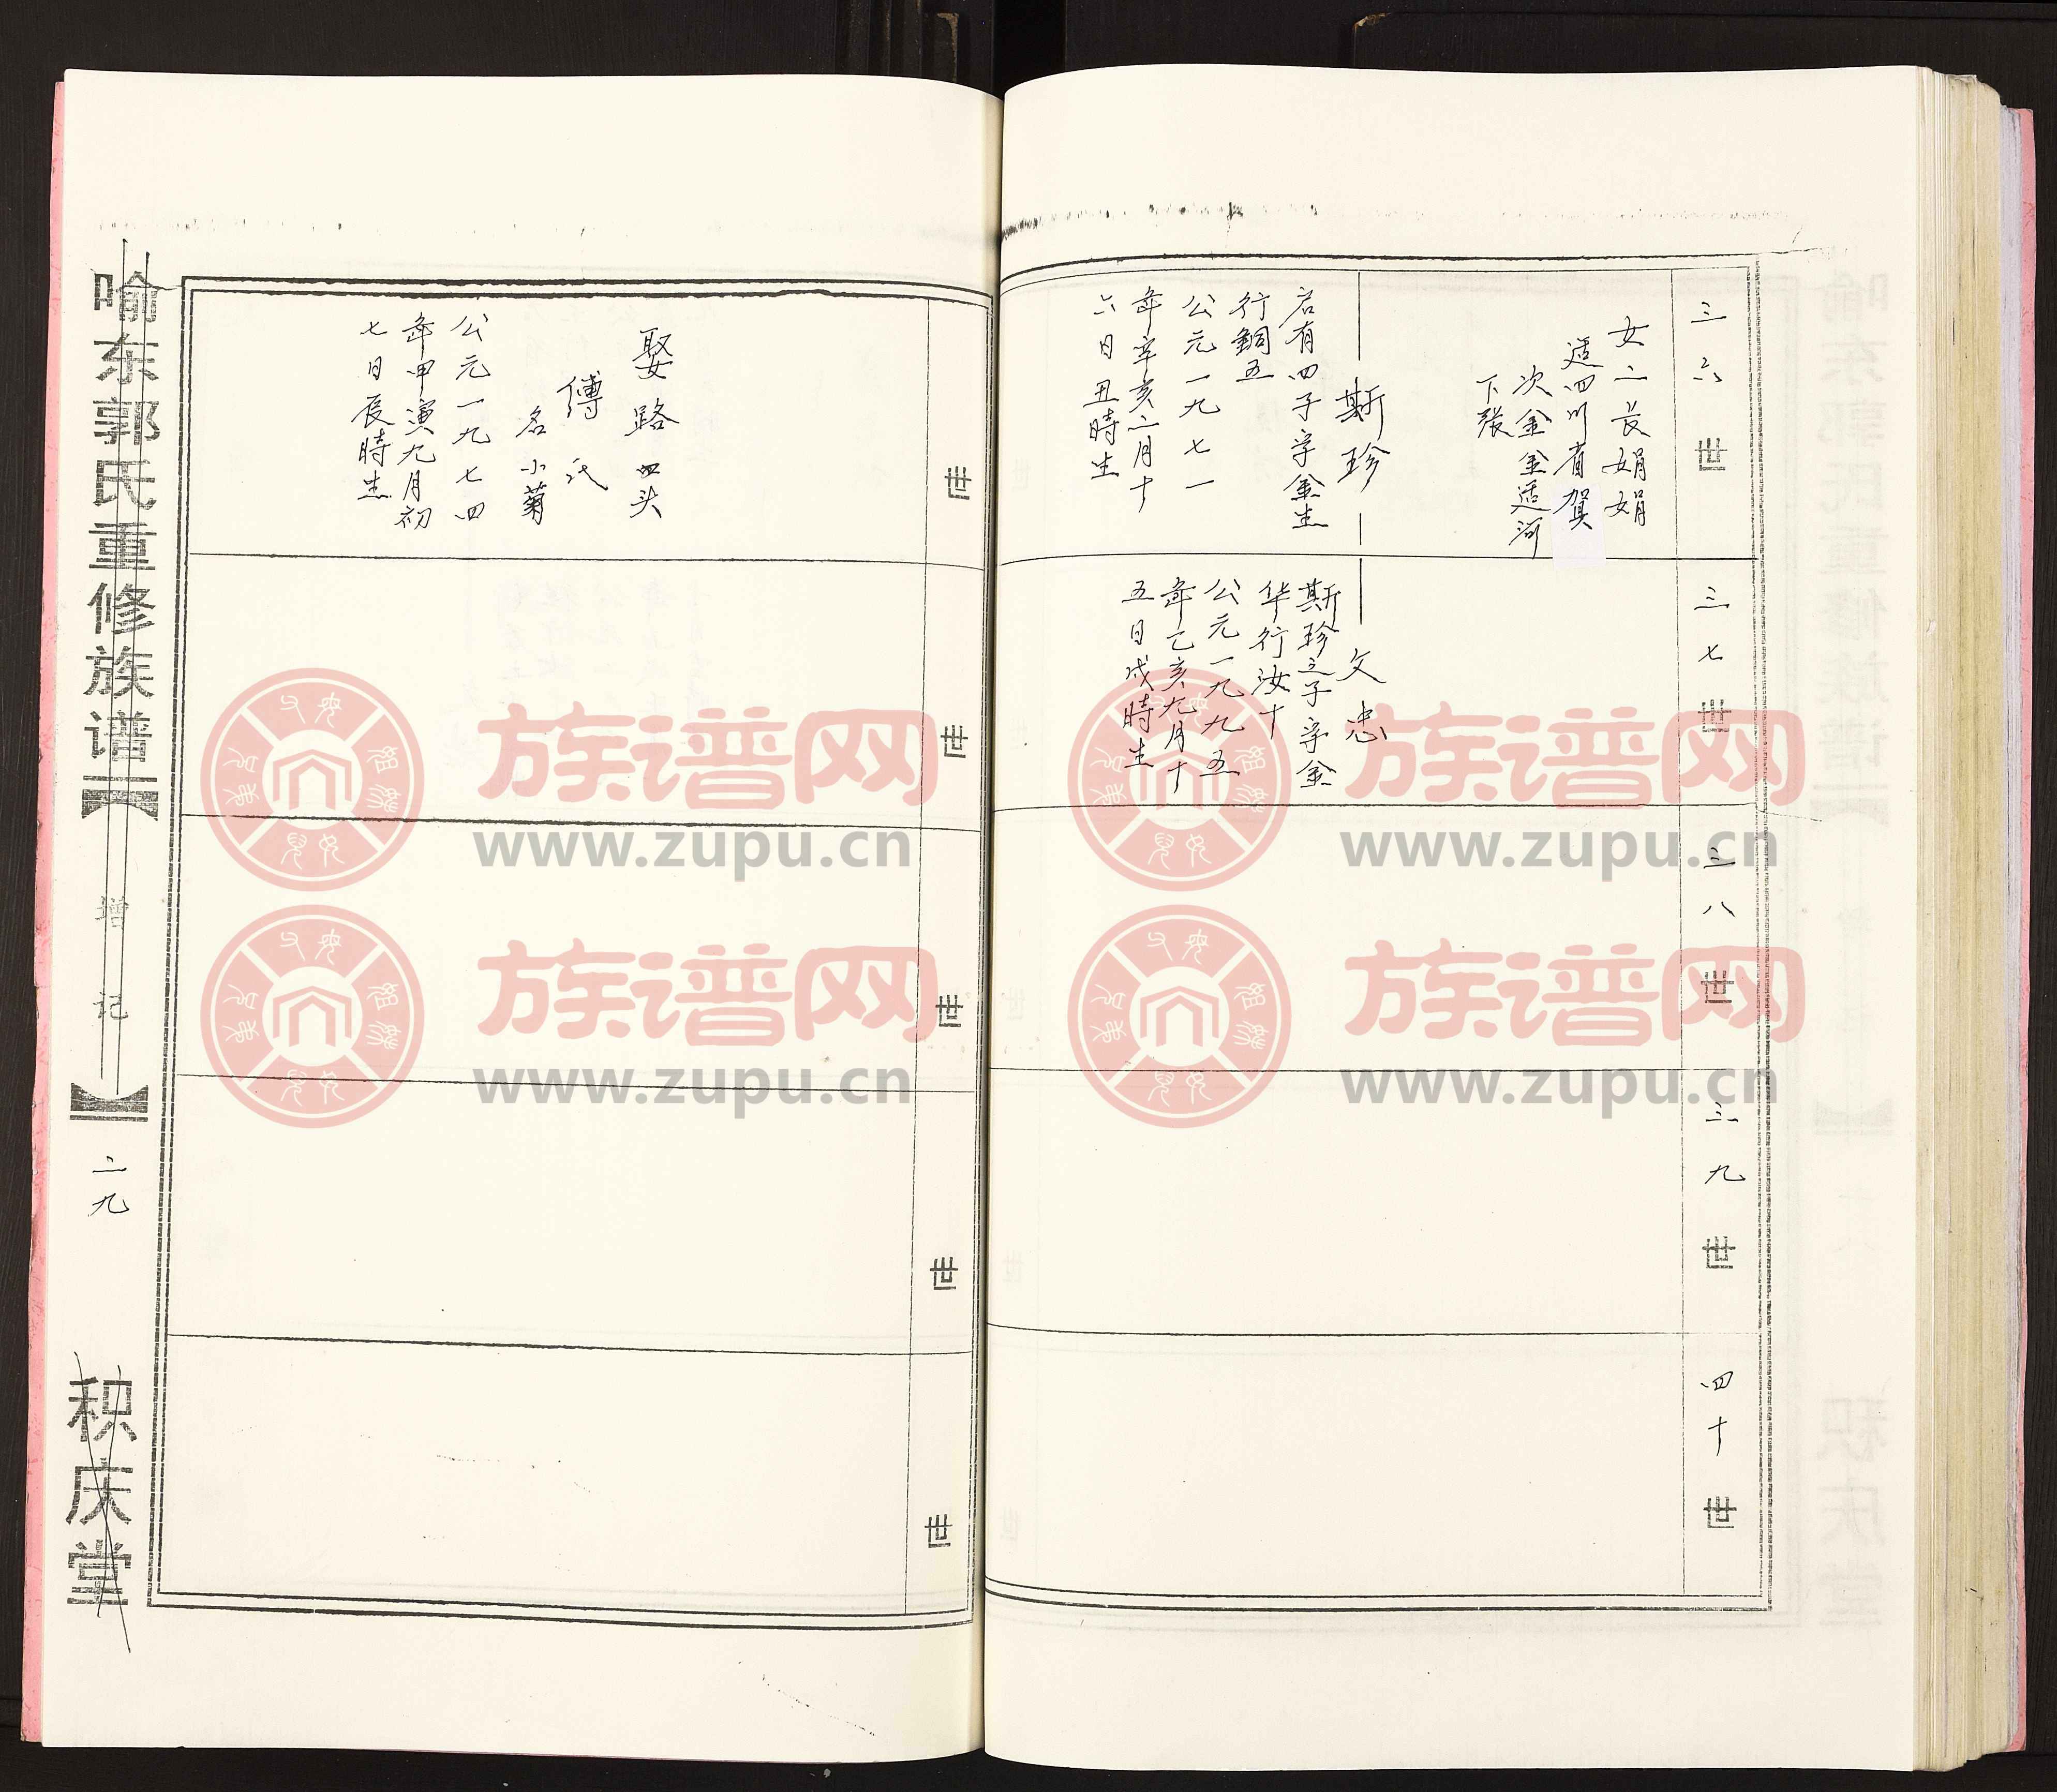 三六世
女二长娟娟
适四川省贺
次金金适河
下张
斯珍
启有四子字金生
行銅五
公元一九七一
年辛亥二月十
六日丑時生
三七世
文忠
斯珍之子字金
华行汝十
公元一九九五
年乙亥九月十
五日戌時生
三八世
三九世
四十世
世
娶路口头
傅氏
名小菊
公元一九七四
年甲寅九月初
七日辰時生
世
世
世
世
喻东郭氏重修族谱
增记
二九
积庆堂
族谱网
www.zupu.cn
族谱网
www.zupu.cn
族谱网
www.zupu.cn
族谱网
www.zupu.cn